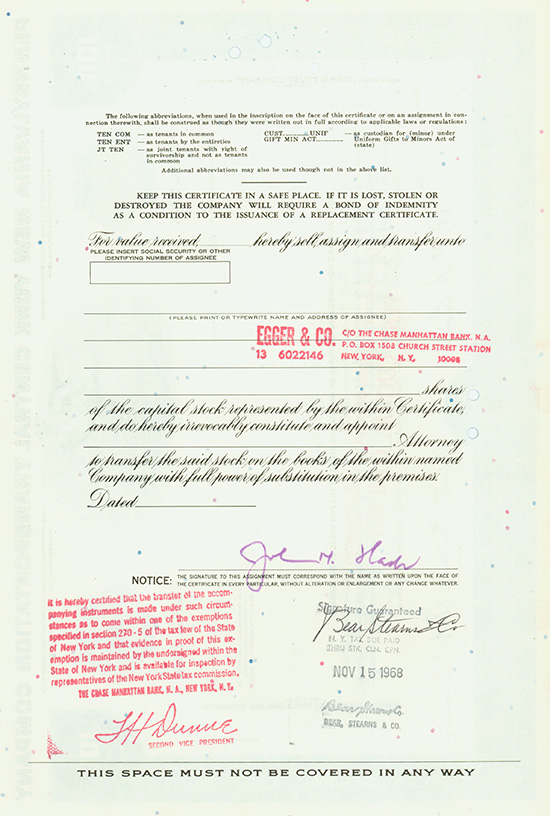 The following abbreviations, when used in the inscription on the face of this certificate or on an assignment in con-
nection therewith, shall be construed as though they were written out in full according to applicable laws or regulations:
TEN COM — as tenants in common
TEN ENT — as tenants by the entireties
JT TEN — as joint tenants with right of
survivorship and not as tenants
in common
CUST.______UNIF — as custodian for (minor) under
GIFT MIN ACT______ Uniform Gifts to Minors Act of
(state)
Additional abbreviations may also be used though not in the above list.
KEEP THIS CERTIFICATE IN A SAFE PLACE. IF IT IS LOST, STOLEN OR
DESTROYED THE COMPANY WILL REQUIRE A BOND OF INDEMNITY
AS A CONDITION TO THE ISSUANCE OF A REPLACEMENT CERTIFICATE.
For value received, ______ hereby sell, assign and transfer unto
PLEASE INSERT SOCIAL SECURITY OR OTHER
IDENTIFYING NUMBER OF ASSIGNEE
(PLEASE PRINT OR TYPEWRITE NAME AND ADDRESS OF ASSIGNEE)
EGGER & CO. C/O THE CHASE MANHATTAN BANK, N.A.
P.O. BOX 1508 CHURCH STREET STATION
13 6022146 NEW YORK, N. Y. 10008
______ shares
of the capital stock represented by the within Certificate,
and do hereby irrevocably constitute and appoint
______ Attorney
to transfer the said stock on the books of the within named
Company with full power of substitution in the premises.
Dated ______
John M.
NOTICE: THE SIGNATURE TO THIS ASSIGNMENT MUST CORRESPOND WITH THE NAME AS WRITTEN UPON THE FACE OF
THE CERTIFICATE IN EVERY PARTICULAR, WITHOUT ALTERATION OR ENLARGEMENT OR ANY CHANGE WHATEVER.
It is hereby certified that the transfer of the accom-
panying instruments is made under such circum-
stances as to come within one of the exemptions
specified in section 270-5 of the tax law of the State
of New York and that evidence in proof of this ex-
emption is maintained by the undersigned within the
State of New York and is available for inspection by
representatives of the New York State tax commission.
THE CHASE MANHATTAN BANK, N. A., NEW YORK, N. Y.
SECOND VICE PRESIDENT
Signature Guaranteed
Bear Stearns & Co.
N. Y. TAX DUE PAID
CLN. CPN.
NOV 15 1968
Bear, Stearns & Co
BEAR, STEARNS & CO.
THIS SPACE MUST NOT BE COVERED IN ANY WAY